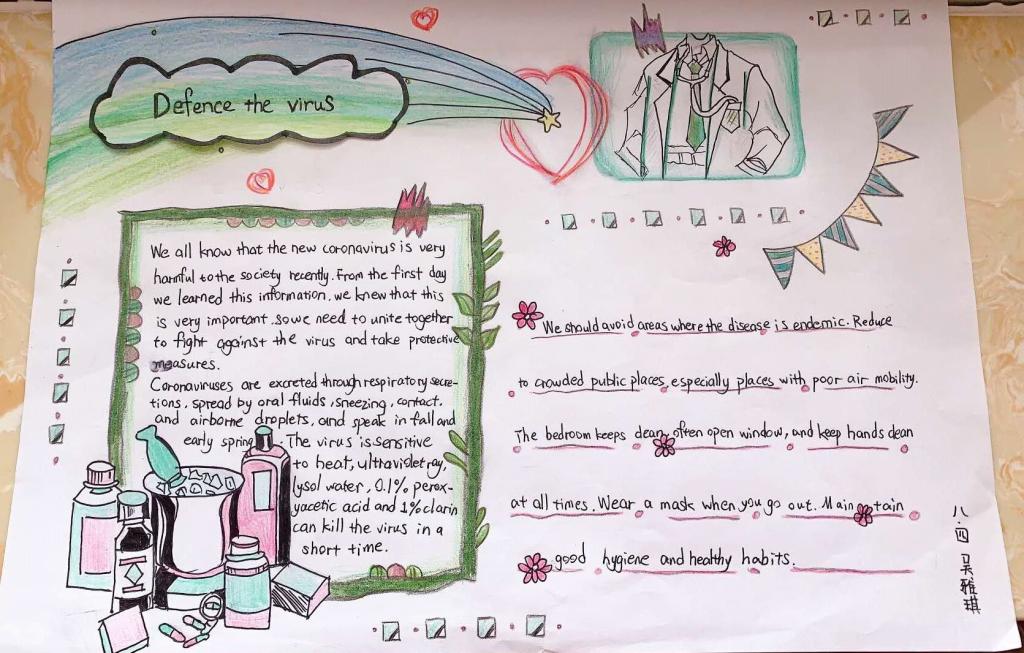 Defence the virus
We all know that the new coronavirus is very
harmful to the society recently. From the first day
we learned this information, we knew that this
is very important. so we need to unite together
to fight against the virus and take protective
measures.
Coronaviruses are excreted through respiratory secre-
tions, spread by oral fluids, sneezing, contact,
and airborne droplets, and speak in fall and
early spring. The virus is sensitive
to heat, ultraviolet ray,
lysol water, 0.1% perox-
yacetic acid and 1% clarin
can kill the virus in a
short time.
We should avoid areas where the disease is endemic. Reduce
to crowded public places, especially places with poor air mobility.
The bedroom keeps clean, often open window, and keep hands clean
at all times. Wear a mask when you go out. Main tain
good hygiene and healthy habits.
八.四 吴雅琪